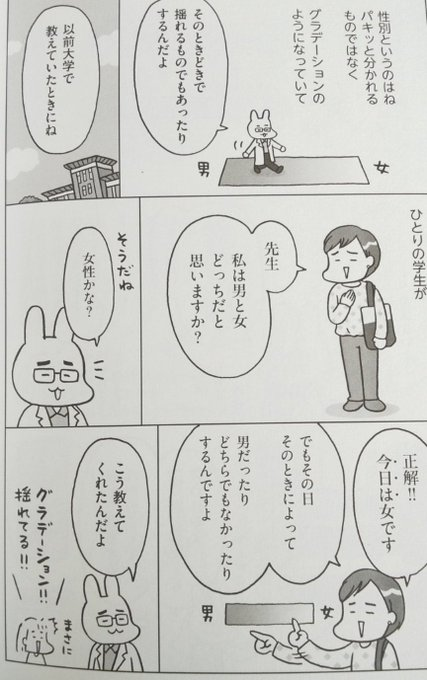 性別というのはね
パキッと分かれる
ものではなく
グラデーションの
ようになっていて
そのときどきで
揺れるものでもあったり
するんだよ
男
女
以前大学で
教えていたときにね
ひとりの学生が
先生
私は男と女
どっちだと
思いますか？
そうだね
女性かな？
正解!!
今日は女です
でもその日
そのときによって
男だったり
どちらでもなかったり
するんですよ
男
女
こう教えて
くれたんだよ
まさに
グラデーション!!
揺れてる!!